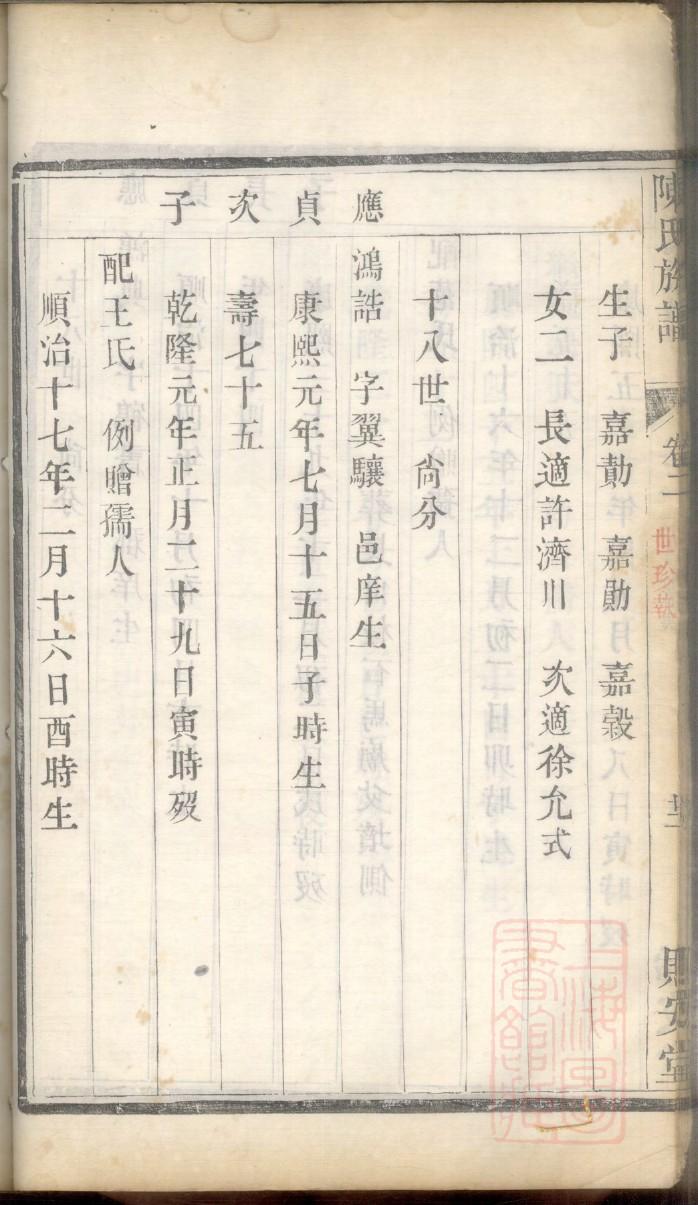 陳氏族譜
卷二
世珍執
則安堂
生子 嘉勣 嘉勛 嘉穀
女二 長適許濟川 次適徐允式
十八世 尙分
應貞次子
鴻誥 字翼驤 邑庠生
康熙元年七月十五日子時生
壽七十五
乾隆元年正月二十九日寅時歿
配王氏 例贈孺人
順治十七年二月十六日酉時生
上海圖書館藏